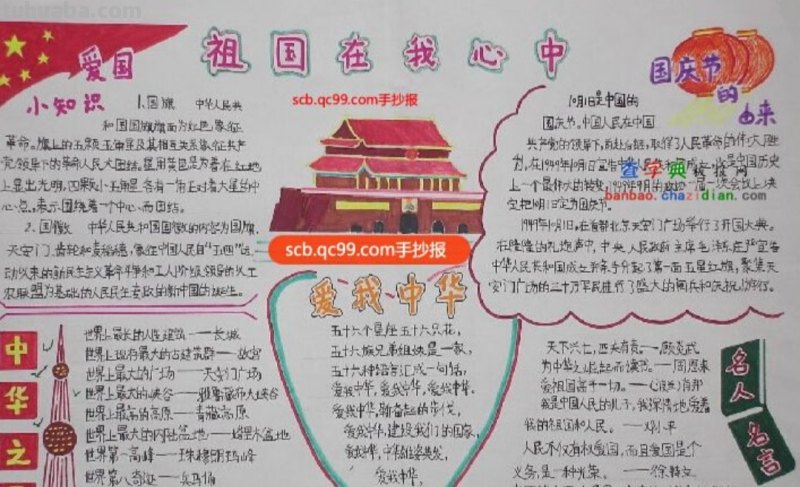 tuhuaba.com
祖国在我心中
爱国
小知识
1.国旗 中华人民共
和国国旗旗面为红色象征
革命。旗上的五颗五角星及其相互关系象征共产
党领导下的革命人民大团结。星用黄色是为着在红地
上显出光明,四颗小五角星各有一角正对着大星的中
心点,表示围绕着一个中心而团结。
2.国徽 中华人民共和国国徽的内容为国旗、
天安门、齿轮和麦稻穗,象征中国人民自"五四"运
动以来的新民主主义革命斗争和工人阶级领导的以工
农联盟为基础的人民民主专政的新中国的诞生。
scb.qc99.com手抄报
scb.qc99.com手抄报
国庆节
的由来
10月1日是中国的
国庆节,中国人民在中国
共产党的领导下,前赴后继,取得了人民革命的伟大胜
利,在1949年10月
成立,这是中国历史
上一个最伟大的转变
1949年9月的政协一届一次会议上决
定把10月1日定为国庆节。
查字典板报网
banbao.chazidian.com
1949年10月1日,在首都北京天安门广场举行了开国大典。
在隆隆的礼炮声中,中央人民政府主席毛泽东庄严宣告
中华人民共和国成立并亲手升起了第一面五星红旗,聚集天
安门广场的三十万军民进行了盛大的阅兵和庆祝游行。
中华之
世界上最长的人造建筑——长城
世界上现存最大的古建筑群——故宫
世界上最大的广场——天安门广场
世界上最大的峡谷——雅鲁藏布大峡谷
世界上最高的高原——青藏高原
世界上最大的内陆盆地——塔里木盆地
世界第一高峰——珠穆朗玛峰
世界第八奇迹——兵马俑
爱我中华
五十六个星座五十六只花,
五十六族兄弟姐妹是一家,
五十六种语言汇成一句话,
爱我中华,爱我中华,爱我中华.
爱我中华,
爱我中华,建设我们的国家,
爱我中华,中华雄姿英发,
爱我中华,
天下兴亡,匹夫有责。——顾炎武
为中华之崛起而读书。——周恩来
爱祖国高于一切。——
我是中国人民的儿子,我深情地爱着
我的祖国和人民。——邓小平
人民不仅有权爱国,而且爱国是个
义务,是一种光荣。——徐特立
名人
名言